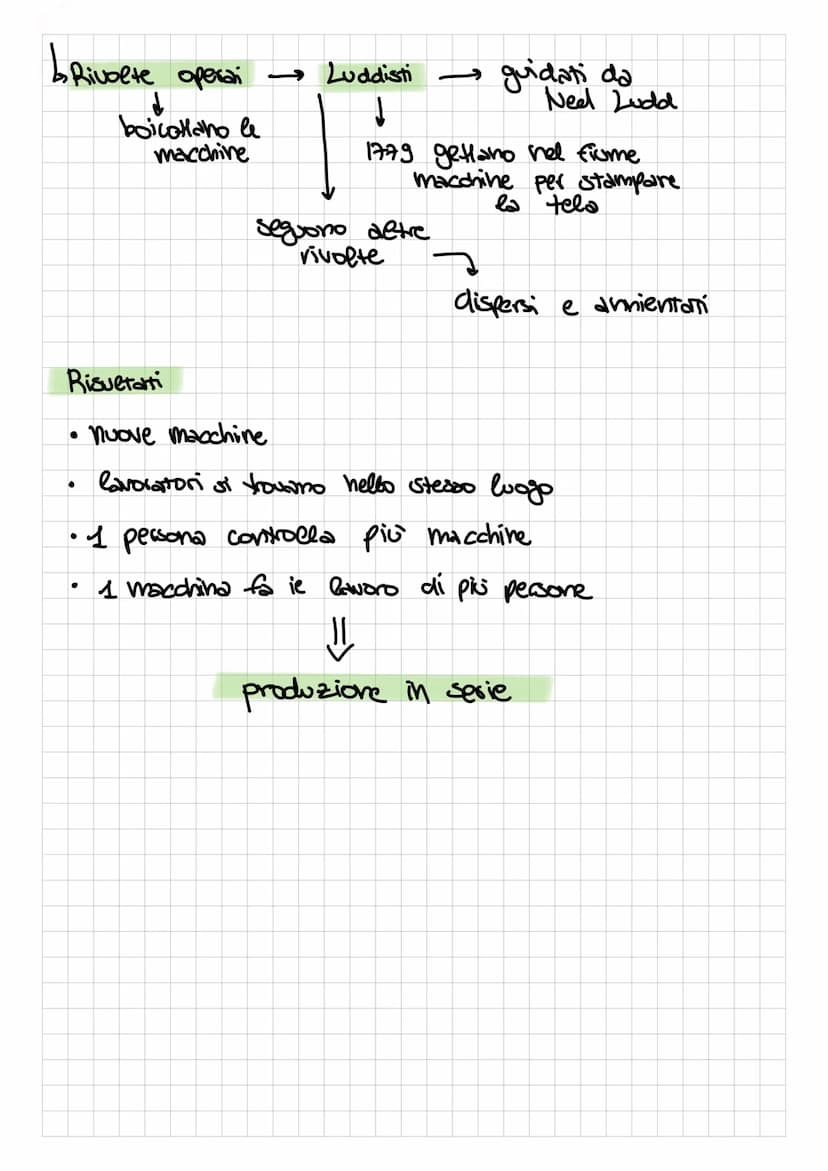 ↳ Rivolte operai → Luddisti → guidati da
Ned Ludd
boicottano le
macchine
1779 gettano nel fiume
macchine per stampare
la tela
seguono altre
rivolte
dispersi e annientati
Risultati
• nuove macchine
• lavoratori si trovano nello stesso luogo
• 1 persona controlla più macchine
• 1 macchina fa il lavoro di più persone
⇓
produzione in serie